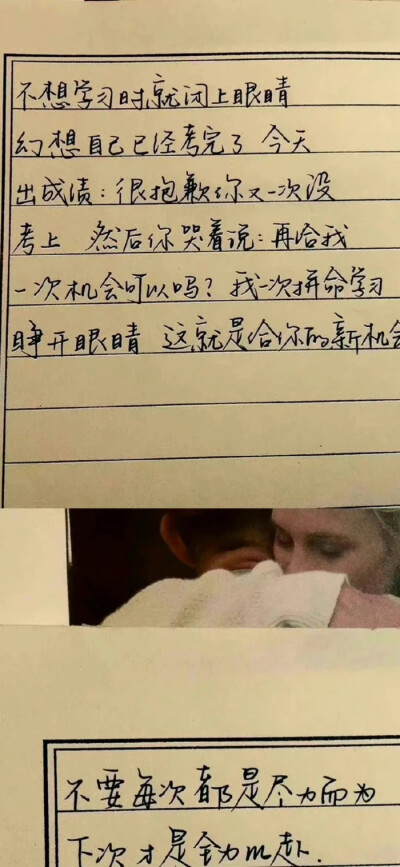 不想学习时就闭上眼睛
幻想自己已经考完了 今天
出成绩：很抱歉你又一次没
考上 然后你哭着说：再给我
一次机会可以吗？我一次拼命学习
睁开眼睛 这就是给你的新机会
不要每次都是尽力而为
下次才是全力以赴.